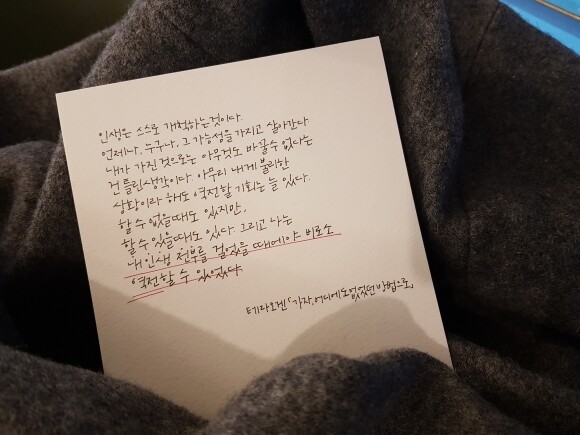 인생은 스스로 개척하는것이다.
언제나, 누구나, 그 가능성을 가지고 살아간다.
내가 가진 것으로는 아무것도 바꿀수 없다는
건 틀린 생각이다. 아무리 내게 불리한
상황이라 해도 역전할 기회는 늘 있다.
할 수 없을때도 있지만,
할 수 있을때도 있다. 그리고 나는
내 인생 전부를 걸었을 때에야 비로소
역전할 수 있었다.
테라오겐 「가자, 어디에도 없었던 방법으로」